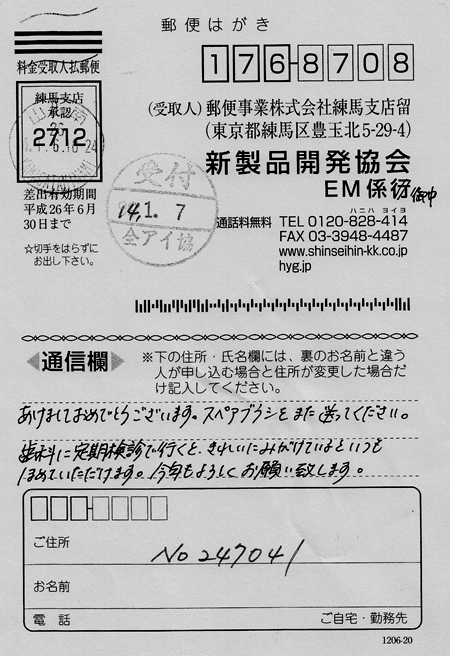 郵便はがき
料金受取人払郵便
1768708
練馬支店
承認
2712
(受取人)郵便事業株式会社練馬支店留
(東京都練馬区豊玉北5-29-4)
新製品開発協会
EM係 御中
差出有効期間
平成26年6月
30日まで
☆切手をはらずに
お出し下さい。
受付
14.1.7
全アイ協
ハニハ ヨイヨ
通話料無料 TEL 0120-828-414
FAX 03-3948-4487
www.shinseihin-kk.co.jp
hyg.jp
通信欄
※下の住所・氏名欄には、裏のお名前と違う
人が申し込む場合と住所が変更した場合だ
け記入してください。
あけましておめでとうございます。スペアブラシをまた送ってください。
歯科に定期検診で行くと、きれいにみがけているといつも
ほめていただけます。今年もよろしくお願い致します。
ご住所
No 247041
お名前
電話 ご自宅・勤務先
1206-20